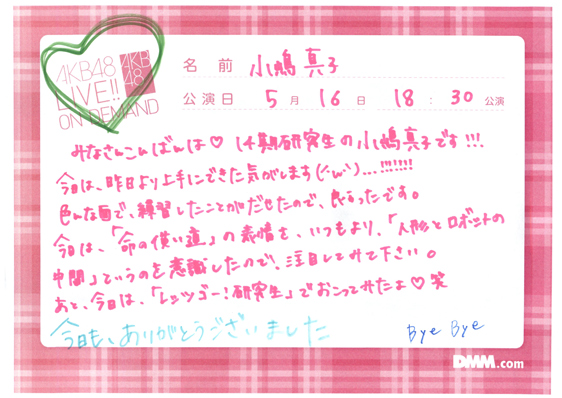 AKB48
LIVE!!
ON DEMAND
AKB
48
名前 小嶋真子
公演日 5月16日 18:30公演
みなさんこんばんは♡ 14期研究生の小嶋真子です!!!
今日は、昨日より上手にできた気がします(・ω・)...!!!!!!!
色んな面で、練習したことがだせたので、良かったです。
今日は、「命の使い道」の表情を、いつもより、「人形とロボットの
中間」というのを意識したので、注目してみて下さい。
あと、今日は、「レッツゴー!研究生」でおこってみたよ♡笑
今日も、ありがとうございました
Bye Bye
DMM.com